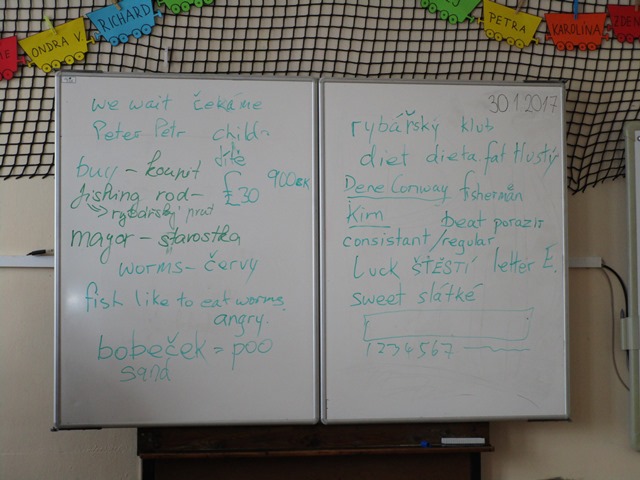 ONDRA V.
RICHARD
PETRA
KAROLÍNA
we wait čekáme
Peter Petr child
dítě
buy - koupit
900CK
fishing rod - £30
rybářský prut
mayor - starostka
worms - červy
fish like to eat worms
angry.
bobeček = poo
sand
30.1.2017
rybářský klub
diet dieta. fat tlustý
Dene Conway fisherman
Kim beat porazit
consistant/regular
Luck ŠTĚSTÍ letter E.
sweet slátké
1234567